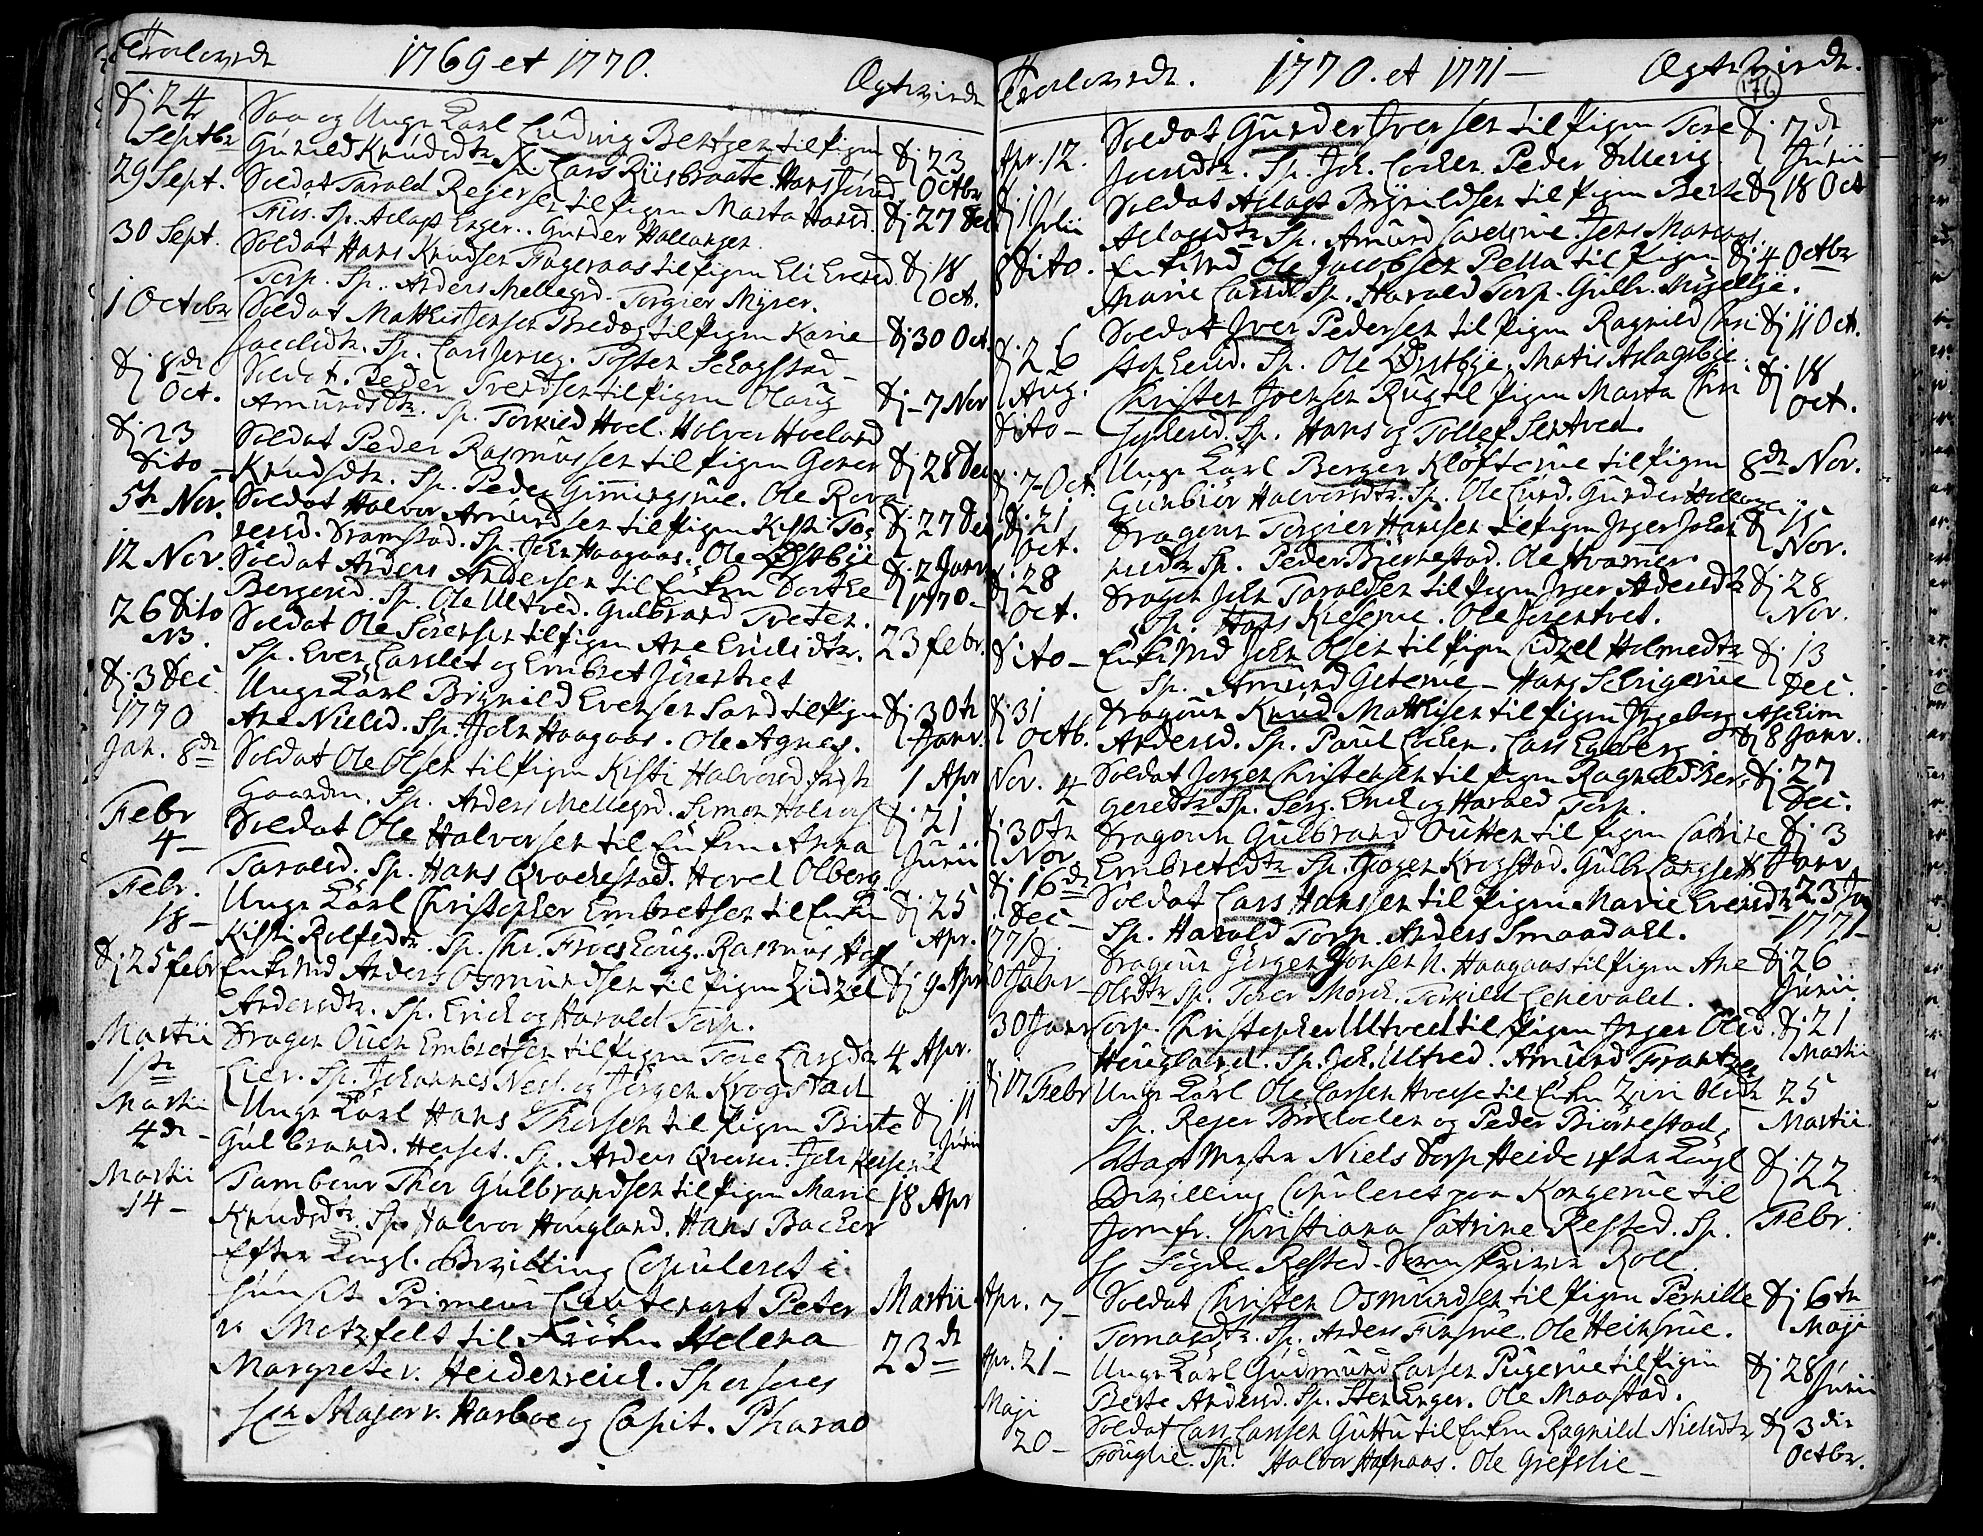 Trolovede 1769 et 1770. Ægteviede
Dj 24 Septbr
Soa og Ungr Karl Ludvig Bentsen til Pigen
Gunild Knudsdtr Sp. Lars Riisbraate. Hans
Dj 23 Octbr
29 Sept. Soldat Tarald Rejersen til Pigen Marta Harsd.
Sp. Aslagh Enger. Gunder Hallangen.
Dj 27 Dec
30 Sept. Soldat Hans Knudsen Fageraas til Pigen Eli Evensd
Torp. Sp. Anders Mellegrd. Torgier Myrer.
Dj 18 Oct.
1 Octobr Soldat Matthis Jensen Bredæg til Pigen Karie
Sp. Lars Jenseg. Tosten Schogstad
Dj 30 Oct.
Dj 8de Oct.
Soldat. Peder Svendsen til Pigen Olaug
Amundsdtr. Sp. Torkild Hoel. Halvor Hvoland
Dj 7 Nov
Dj 23 Dito
Soldat Peder Rasmussen til Pigen Gunor
Knudsdtr. Sp. Peder Gimmingsrue. Ole Rova
Dj 28 Dec
5te Nov. Soldat Halvor Amundsen til Pigen Kisti
Dramstad. Sp. John Haagaas. Ole Østbye
Dj 27 Dec
12 Nov. Soldat Anders Andersen til Enken Dorthe
Bergersd. Sp. Ole Ultved. Gulbrand Tveten.
Dj 2 Janr 1770
26 Dito NB.
Soldat Ole Sörensen til Pigen Ane Erichsdtr.
Sp. Even Carslet og Embret Jörentvet
23 febr.
Dj 3 Dec
Ungr Karl Brynild Evensen Sand til Pigen
Ane Nielsd. Sp. John Haagaas. Ole Agnes.
Dj 30te Janr.
1770 Jan. 8de
Soldat Ole Olsen til Pigen Kisti Halvorsd
Gaarden. Sp. Anders Mellegrd. Simon
1 Apr
Febr 4
Soldat Ole Halvorsen til Enken Anna
Taralsd. Sp. Hans Qvachestad. Hovel Olberg.
Dj 21 Junii
Febr. 18
Ungr Karl Christopher Embretsen til Enken
Kisti Rolfsdtr. Sp. Chr. Froeshoug. Rasmus Hof
Dj 25 Apr.
Dj 25 febr Enkemd Anders Osmundsen til Pigen Zidzel
Andersdtr. Sp. Erich og Harald Torp.
Dj 9 Apr
Martii 1te
Dragon Ouen Embretsen til Pigen Tore Larsdtr
Lier. Sp. Johannes Nes. og Jörgen Krogstad
4 Apr.
Martii 4de
Ungr Karl Hans Thorsen til Pigen Birte
Gulbransd. Henset. Sp. Anders Joh
Dj 11 Junii
Martii 14
Tambour Thor Gulbrandsen til Pigen Marie
Knudsdtr. Sp. Halvor Hougland. Hans Bacher
18 Apr
Efter Kongl. Bevilling Copuleret i
Huuset Primeur Lieutenant Peter
v. Metzfelt til Fröken Helena
Margrete v. Heidenreich. Sponsores
Hr Major v. Harboe og Capit. Pharao
Martii 23de
Trolovede. 1770. et 1771 Ægteviede.
176
Apr. 12. Soldat Gunder Iversen til Pigen Tore
Sp. Joh. Lochen Peder Dillevig
Dj 7de Junii
Dj 1 Julii
Soldat Aslagh Brynildsen til Pigen Berte
Aslagsdtr Sp. Amund Jens
Dj 18 Oct
8 Dito. Enkemd Ole Jacobsen Pella til Pigen
Marie Larsd Sp. Harald Torp. Gulbr.
Dj 4 Octbr
Dj 26 Aug.
Soldat Iver Pedersen til Pigen Ragnild Chri
stophersd. Sp. Ole Østbye. Matis Aslagsbye.
Dj 11 Oct.
Dito Christen Joensen Rug til Pigen Marta Chri
stophersd. Sp. Hans og Tollef Sentved.
Dj 18 Oct.
Dj 7 Oct. Ungr Karl Berger Klöfterue til Pigen
Gunbiör Halvorsdtr. Sp. Ole Lund. Gunder Hallangen.
8de Nov.
Dj 21 Oct.
Dragoun Torgier Hansen til Pigen Inger Johan
nesdtr Sp. Peder Biörnestad. Ole Hvamer
Dj 15 Nov.
Dj 28 Oct.
Dragon John Taraldsen til Pigen Inger Andersdtr
Sp. Hans Kieserue. Ole Jörentvet.
Dj 28 Nov.
Dito Enkemd John Olsen til Pigen Cidzel Holmsdtr
Sp. Amund Geterue. Hans Schigerue
Dj 13 Dec.
Dj 31 Octb.
Dragoun Knud Matthisen til Pigen Ingeborg
Andersd. Sp. Paul Lochen. Lars Egeberg
Aschim Dj 8 Janr.
Nov. 4 Soldat Jörgen Christensen til Pigen Ragnild Ber-
geresdtr Sp. Serg. Erich og Harald Torp.
Dj 27 Dec.
Dj 30te Nov
Dragoun Gulbrand Outten til Pigen Catrine
Embretsdtr Sp. Jörgen Krogstad. Gulbr Langset
Dj 3 Janr
Dj 16de Dec
Soldat Lars Hanssen til Pigen Marie Evensdtr
Sp. Harald Torp. Anders Smaadahl.
23 Jan 1771
1771 Janr
Dragoun Jörgen Jonsen N. Haagaas til Pigen Ane
Olsdtr Sp. Thor Morch. Torkild Lehevalet.
Dj 26 Junii
30 Janr Corp. Christopher Ultved til Pigen Inger Olsd.
Hougland. Sp. Joh. Ultved. Amund Frantzen
Dj 21 Martii
Dj 17 Febr Ungr Karl Ole Larsen Hvese til Enken Ziri Olsdtr
Sp. Rejer og Peder Biörnestad
25 Martii
Niels Dorpheide efter Kongl
Bevilling Copuleret paa Kongerue til
Jomfr. Christiana Catrine Rested. Sp.
Hr Fogden Rested. Sorenskriver Roll.
Dj 22 Febr.
Apr. 7 Soldat Christen Osmundsen til Pigen Pernille
Tomasdtr. Sp. Anders Finsrue. Ole Heinsrue.
Dj 6te Maji
Apr. 21 Ungr Karl Gudmund Larsen Pugerue til Pigen
Berte Andersd. Sp. Sten Enger. Ole Moastad.
Dj 28 Junii
Maji 20
Soldat Lars Larssen Guttu til Enken Ragnild Nielsdtr
Fouglie. Sp. Halvor Hafnaas. Ole Grefslie
Dj 3die Octbr.